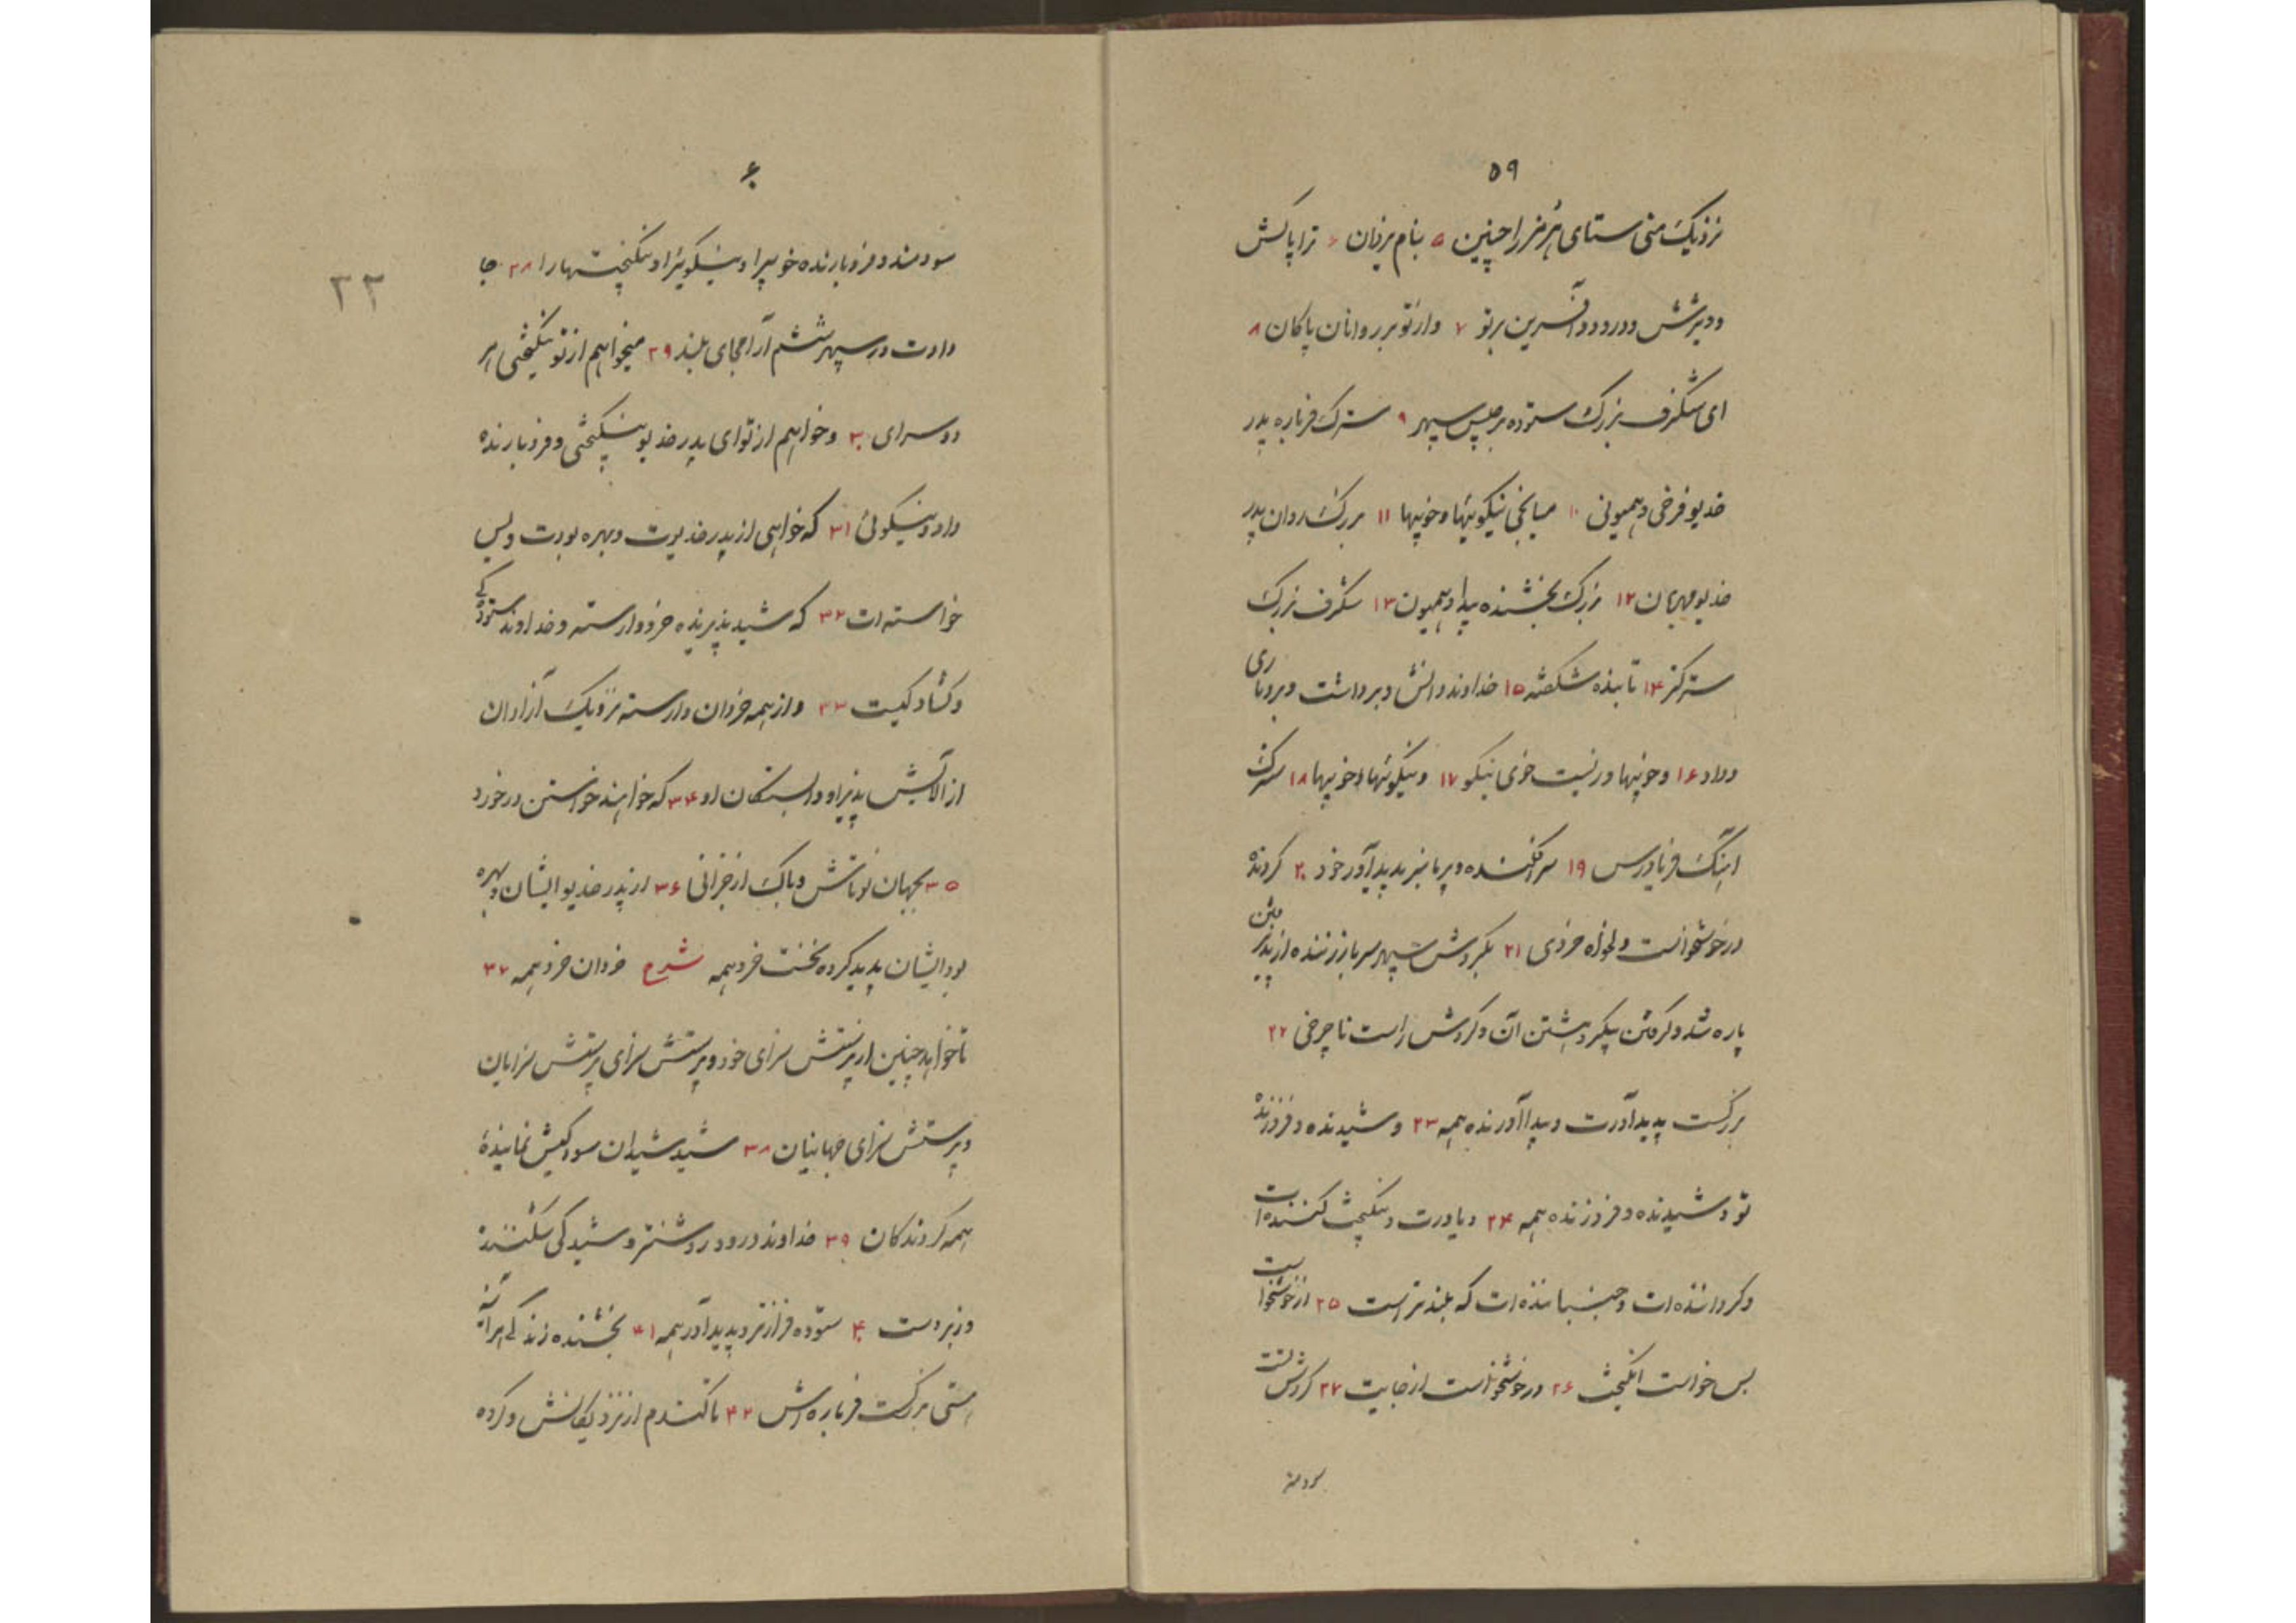 ۵۹
نزدیک منی ستای هرمز را چنین ۵ بنام یزدان ۶ ترا پاکش
و ویژش و درود و آفرین بر تو ۷ و از تو بر روانان پاکان ۸
ای شگرف بزرک ستوده برجیس سپهر ۹ سترک فرناره پدر
خدیو فرخی و همیونی ۱۰ میانجی نیکوییها و خوبیها ۱۱ بزرک روان پدر
خدیو مهربان ۱۲ بزرک بخشنده پیدا و همیون ۱۳ شگرف بزرک
سترکتر ۱۴ تابنده شکفته ۱۵ خداوند دانش و برداشت و بردباری
و داد ۱۶ و خوبیها و زیست خوی نیکو ۱۷ و نیکوئیها و خوبیها ۱۸ سترک
آهنگ فریادرس ۱۹ سرافکننده و پرمانبر پدیدآور خود ۲۰ کردنده
در خوشخواست و لخواه خردی ۲۱ بگردش سپهر سر باز زننده از پذیرفتن
پاره شدن و گرفتن پیکر و هشتن آن و گردش راست نا چرخی ۲۲
بزرگست پدیدآورت و پیدا آورنده همه ۲۳ و شیدنده و فروزنده
تو و شیدنده و فروزنده همه ۲۴ و یاورت و نیکبخت کننده‌ات
و گرداننده‌ات و جنباننده‌ات که بلندتر است ۲۵ از خوشخواست
بس خواست انگیخت ۲۶ در خوشخواست از جایت ۲۷ گردشت
سودمند
۶۰
سودمند و فروبارنده خوبیرا و نیکوئیرا و نیکبختیهارا ۲۸ جا
دادت در سپهر ششم آرامجای بلند ۲۹ میخواهم از تو نیکبختی هر
دو سرای ۳۰ و خواهم از تو ای پدر خدیو نیکبختی و فروبارنده
داد و نیکوئی ۳۱ که خواهی از پدر خدیوت و بهره بودت و پس
خواسته‌ات ۳۲ که شید پذیرنده خرد وارسته و خداوند ستودگی
و گشادگیست ۳۳ و از همه خردان وارسته نزدیک آزادان
از آلایش پذیرا و وابستگان او ۳۴ که خواهند خواستن در خورد
۳۵ بجهان نوتاش و پاک از خزانی ۳۶ از پدر خدیو ایشان و بهره
بود ایشان پدید کرده نخست خرد همه شرح خردان خرد همه ۳۷
تا خواهد چنین از پرستش سزای خود و پرستش سزای پرستش سزایان
و پرستش سزای جهانیان ۳۸ شید شیدان سود کیش نماینده
همه کردندگان ۳۹ خداوند درود روشنتر و شیدگی شکننده
و زبردست ۴۰ ستوده فرازتر و پدیدآور همه ۴۱ بخشنده زندگی هر آینه
هستی بزرگست فرناره‌اش ۴۲ تا کندم از نزدیکانش و گروه
۳۲